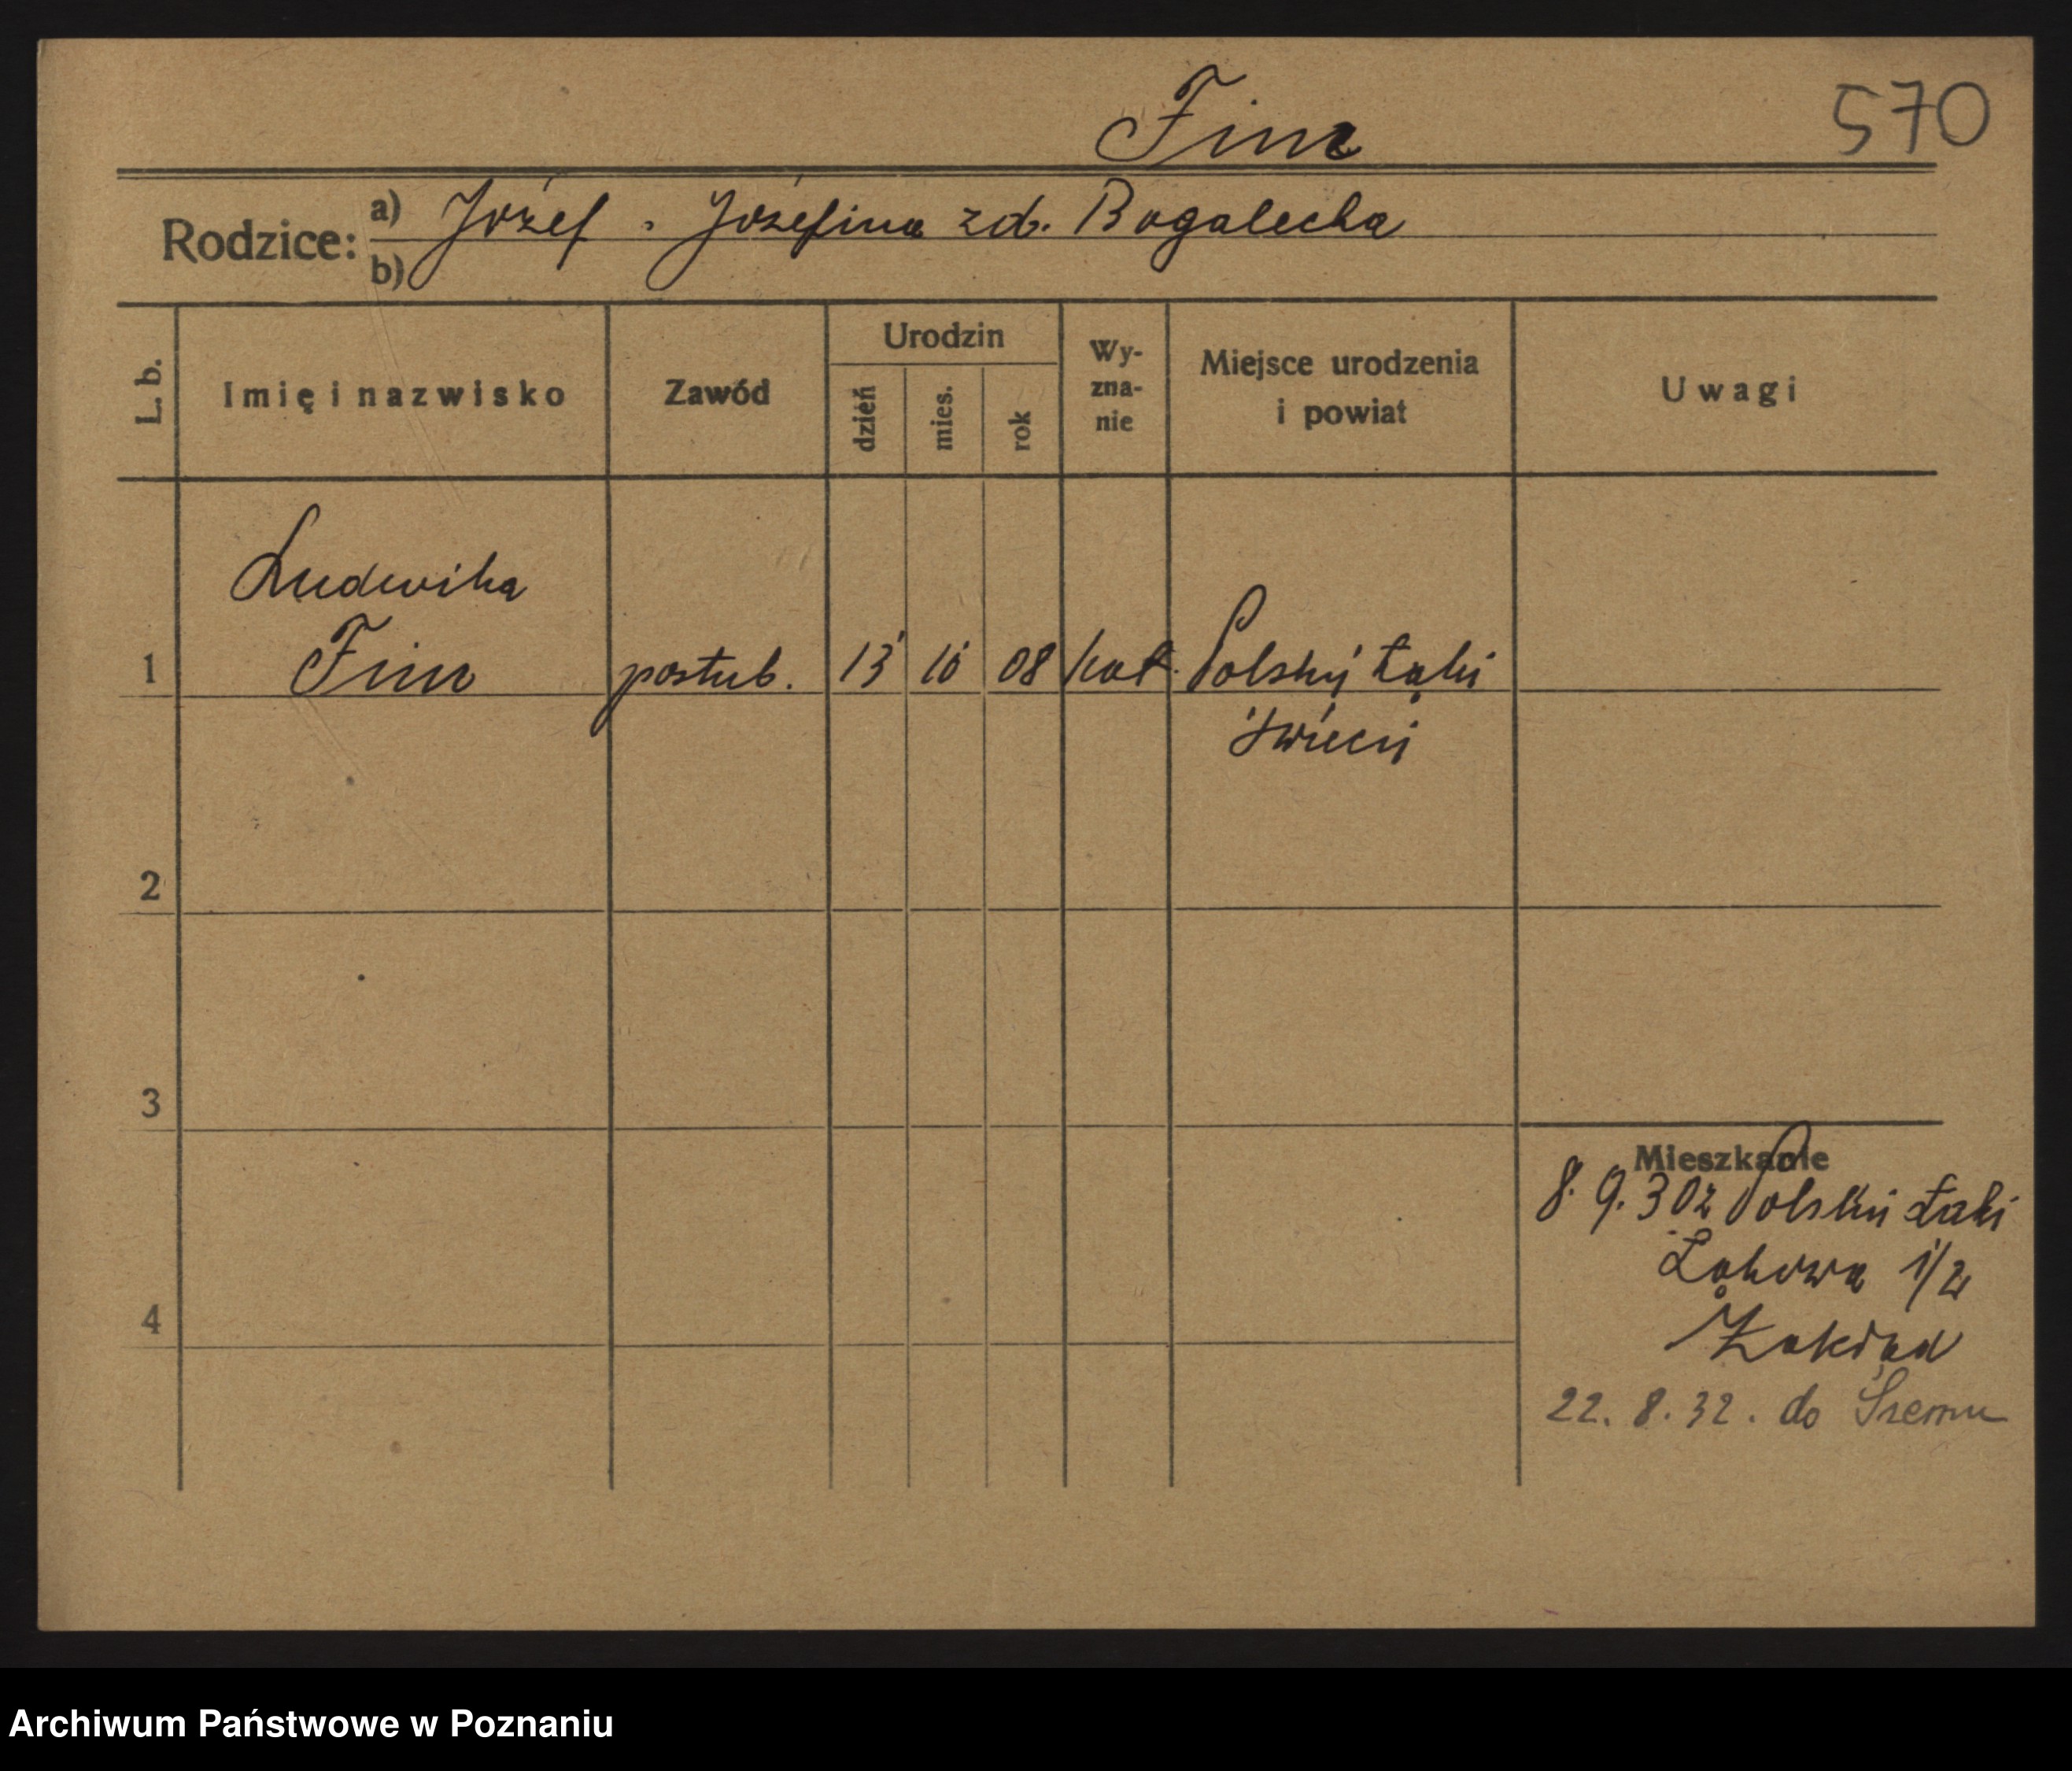 Fim
570
Rodzice:
a) Józef . Józefina zd. Bogalecka
b)
L. b.
Imię i nazwisko
Zawód
Urodzin
dzień
mies.
rok
Wy-
zna-
nie
Miejsce urodzenia
i powiat
Uwagi
Ludwika
1 Fim postub. 13 10 08 kat. Polski Łąki
2
3
4
Mieszkanie
8. 9. 30 z Polski Łąki
Łąkowa 1/2
Zakład
22. 8. 32. do Śremu
Archiwum Państwowe w Poznaniu